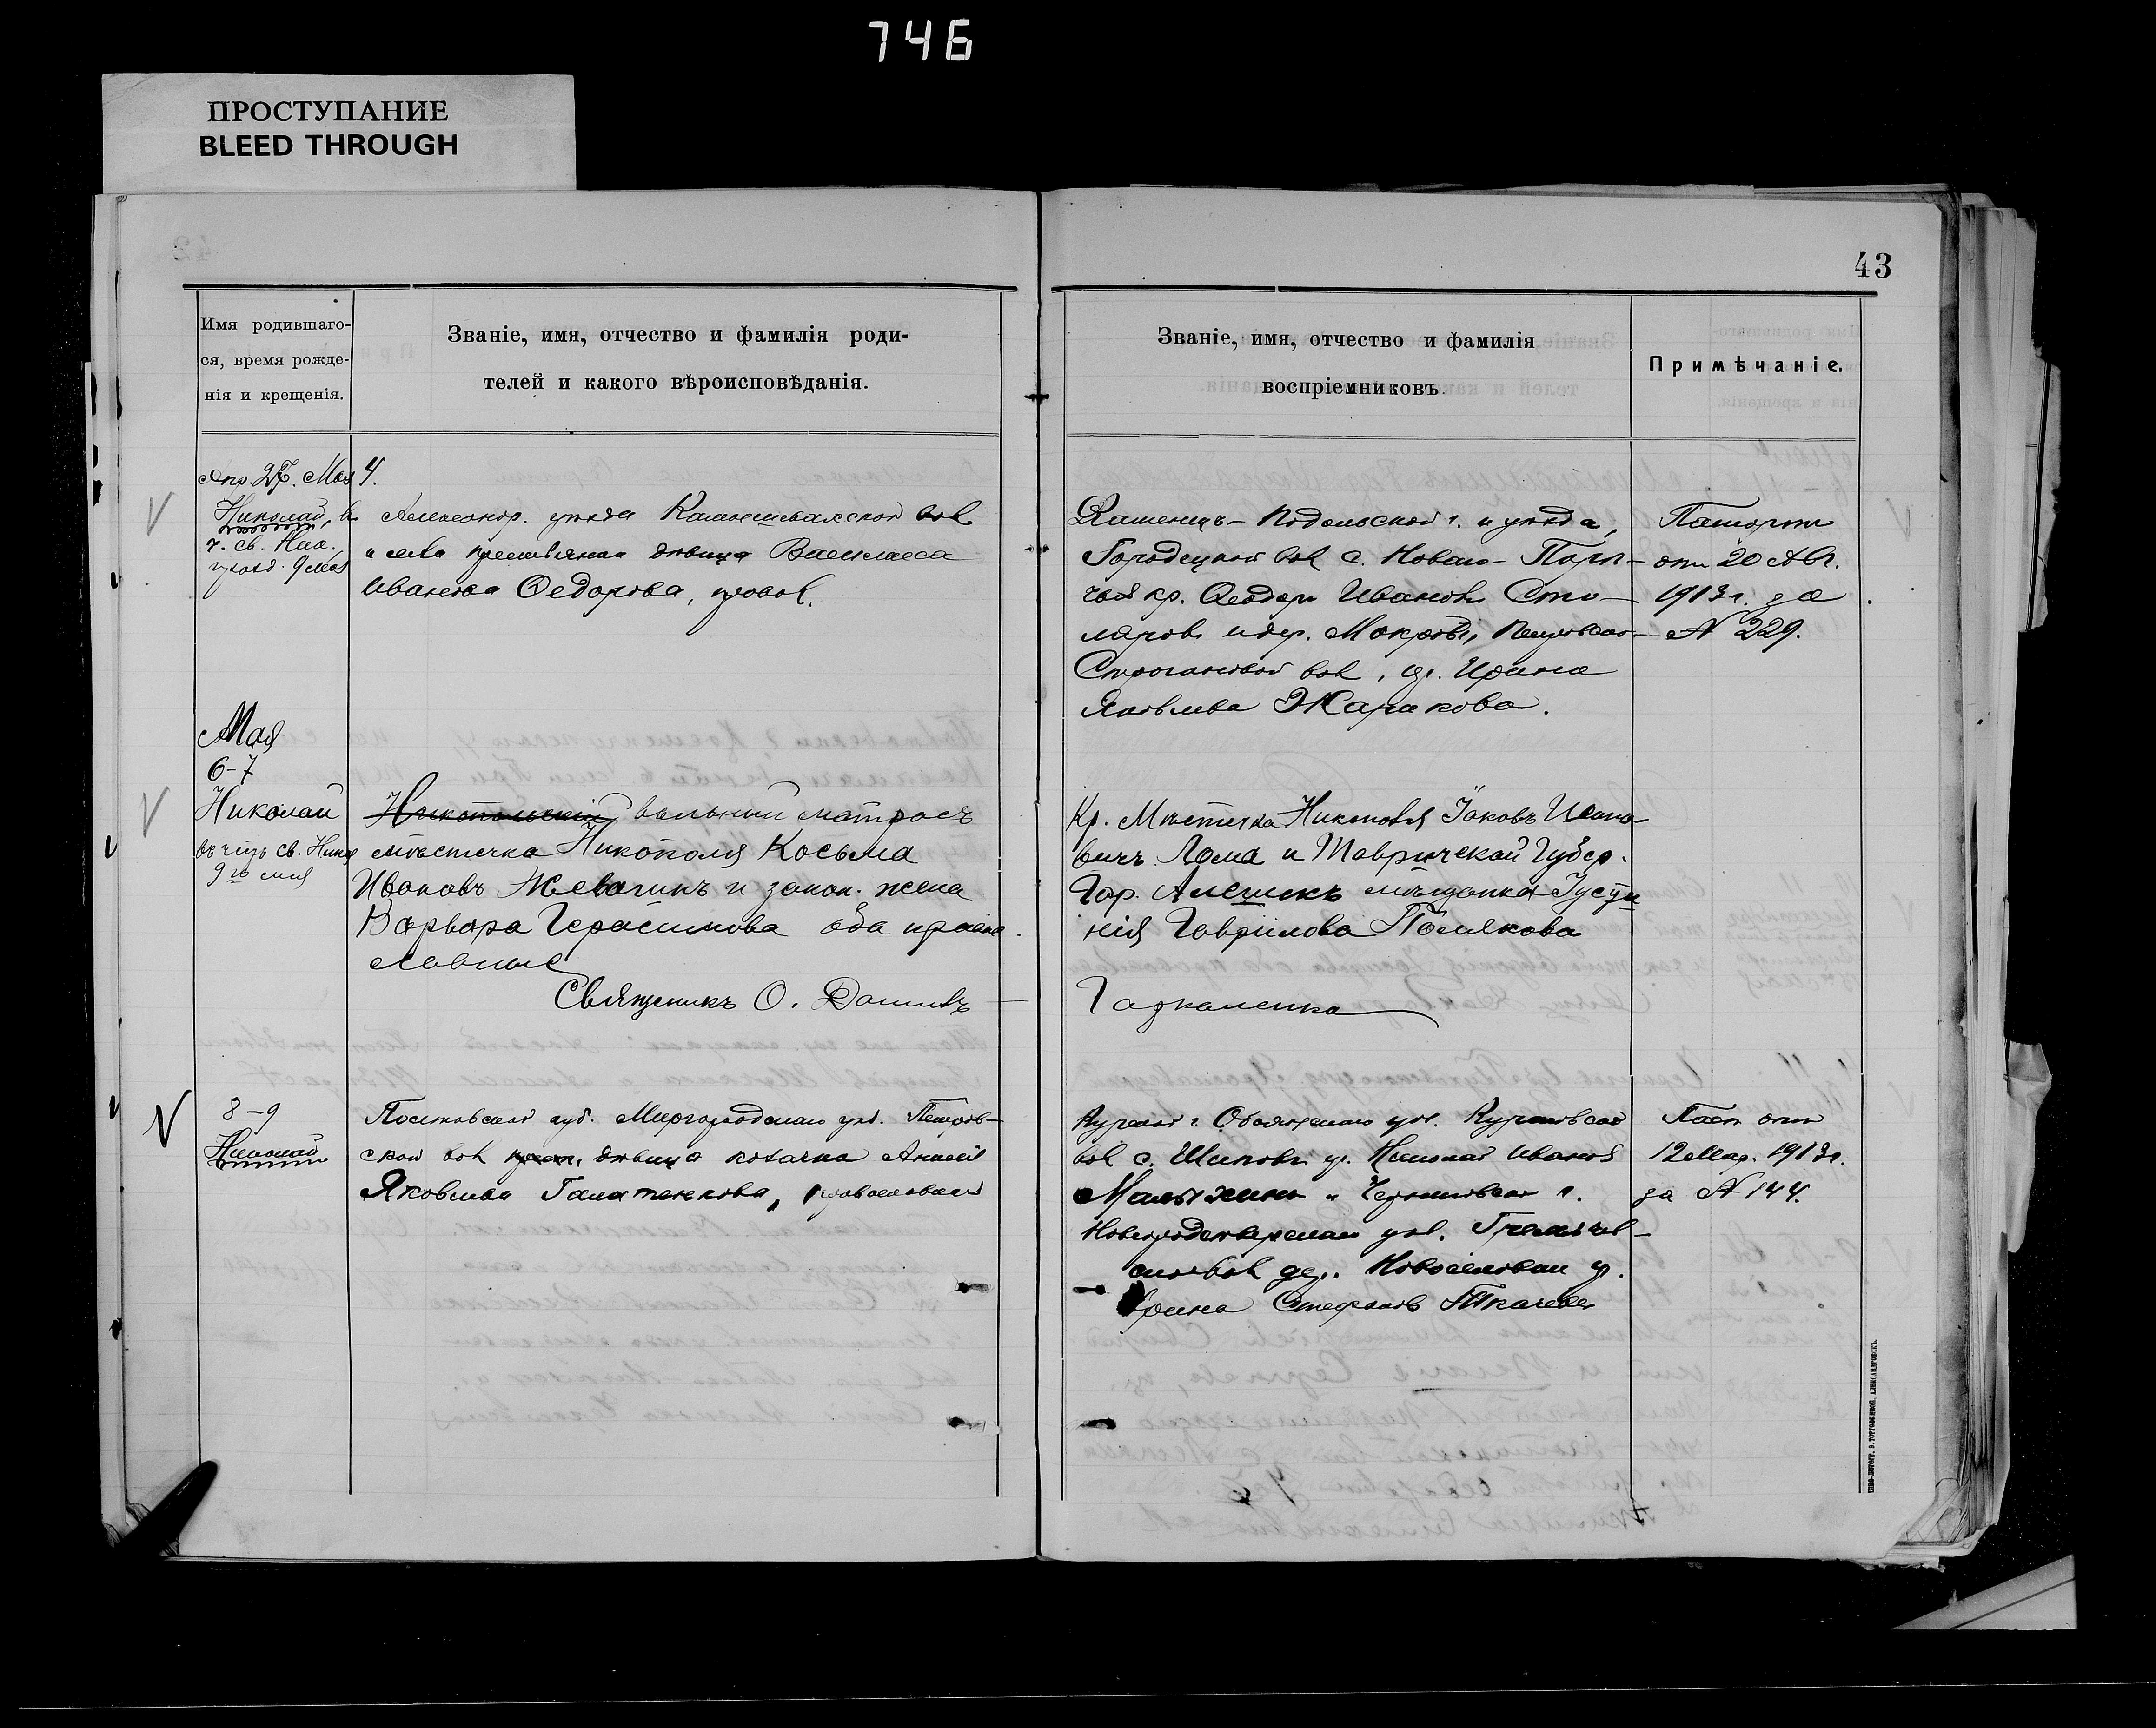 746
ПРОСТУПАНИЕ
BLEED THROUGH
43
Имя родившаго-
ся, время рожде-
нія и крещенія.
Званіе, имя, отчество и фамилія роди-
телей и какого вѣроисповѣданія.
Званіе, имя, отчество и фамилія
воспріемниковъ.
Примѣчаніе.
Апр. 27. Мая 4.
Николай, въ
ч. св. Ник.
празд. 9 мая
Александр. уѣзда Камышевахской вол.
и села крестьянка дѣвица Василисса
Иванова Ѳедорова, правосл.
Каменецъ-Подольской г. и уѣзда,
Городецкой вол. с. Новаго-
кр. Ѳеодоръ Ивановъ Сто-
ляровъ и дер. Мокрой,
Строгановой вол., кр. Ирина
Яковлева Жарикова.
Паспортъ
отъ 20 Авг.
1913 г. за
№ 229.
Мая
6-7
Николай
въ честь св. Никол
9го мая
Никопольскій вольный матросъ
мѣстечка Никополя Косьма
Ивановъ Жевагинъ и закон. жена
Варвара Герасимова оба право
славные
Священникъ О. Даниловъ
Кр. Мѣстечка Никополя Іаковъ Ивано-
вичъ Лома и Таврической Губер.
Гор. Алешекъ мѣщанка Іусти
нія Гавріилова Полякова
Гаркаленко
8-9
Николай
Полтавской губ. Миргородскаго уѣз. Петров-
ской вол. крест. дѣвица козачка Анисія
Яковлева Галатенкова, православная
Курской г. Обоянскаго уѣз. Курасовской
вол. с. Шиповъ кр. Николай Ивановъ
Малыхинъ и Черниговской г.
Новгородсѣверскаго уѣз. Гремячев-
ской вол. дер. Новоселовки кр.
Ирина Стефанова Ткачева
Пасп. отъ
12 Мар. 1913 г.
за № 144.